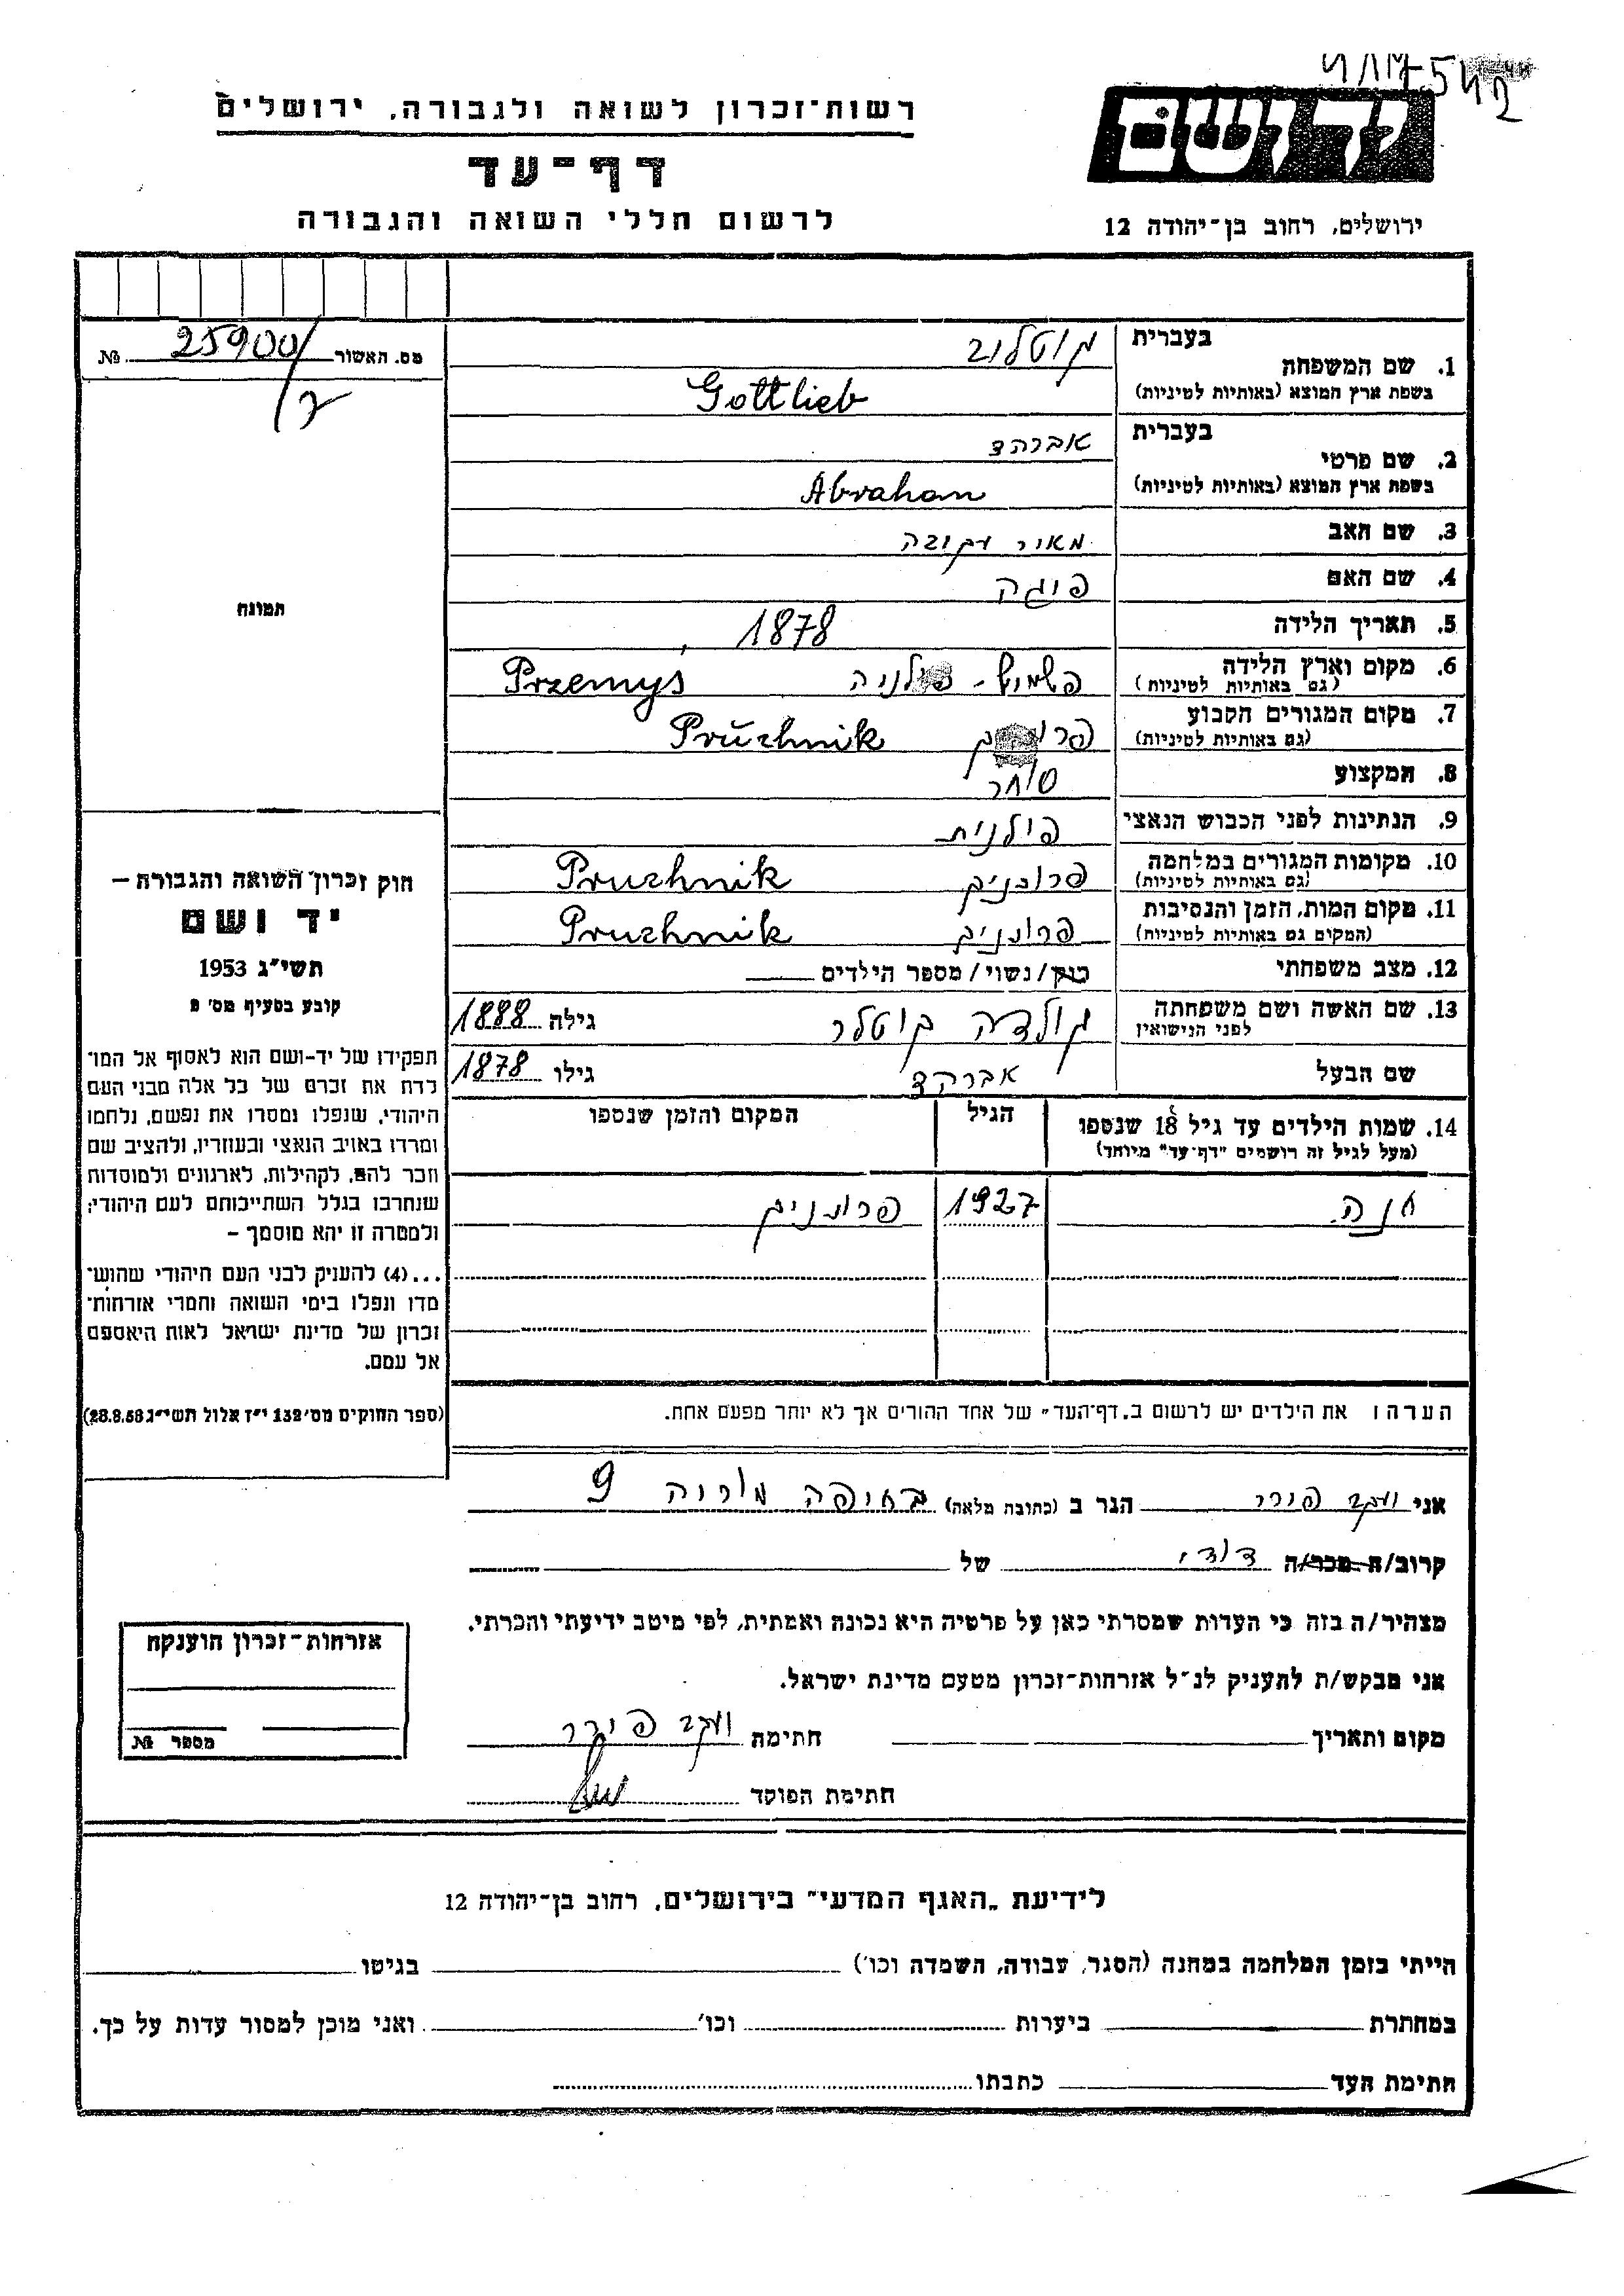 רשות־זכרון לשואה ולגבורה, ירושלים
דף־עד
לרשום חללי השואה והגבורה
ידושם
ירושלים, רחוב בן־יהודה 12
מס. האשור 25900/ №
תמונה
חוק זכרון השואה והגבורה –
יד ושם
תשי״ג 1953
קובע בסעיף מס׳ 2
תפקידו של יד-ושם הוא לאסוף אל המו־
לדת את זכרם של כל אלה מבני העם
היהודי, שנפלו ומסרו את נפשם, נלחמו
ומרדו באויב הנאצי ובעוזריו, ולהציב שם
וזכר להם, לקהילות, לארגונים ולמוסדות
שנחרבו בגלל השתייכותם לעם היהודי;
ולמטרה זו יהא מוסמך –
...(4) להעניק לבני העם היהודי שהוש־
מדו ונפלו בימי השואה והמרי אזרחות־
זכרון של מדינת ישראל לאות היאספם
אל עמם.
(ספר החוקים מס׳ 132 י״ז אלול תשי״ג 28.8.53)
בעברית
1. שם המשפחה גוטליב
בשפת ארץ המוצא (באותיות לטיניות) Gottlieb
בעברית
2. שם פרטי אברהם
בשפת ארץ המוצא (באותיות לטיניות) Abraham
3. שם האב מאיר יעקב
4. שם האם פיגה
5. תאריך הלידה 1878
6. מקום וארץ הלידה פשמיש - פולניה Przemys
(גם באותיות לטיניות)
7. מקום המגורים הקבוע Pruchnik
(גם באותיות לטיניות)
8. המקצוע סוחר
9. הנתינות לפני הכבוש הנאצי פולנית
10. מקומות המגורים במלחמה פרוכניק Pruchnik
(גם באותיות לטיניות)
11. מקום המות, הזמן והנסיבות פרוכניק Pruchnik
(המקום גם באותיות לטיניות)
12. מצב משפחתי רווק/נשוי/מספר הילדים
13. שם האשה ושם משפחתה גולדה גילה 1888
לפני הנישואין
שם הבעל אברהם גילו 1878
14. שמות הילדים עד גיל 18 שנספו הגיל המקום והזמן שנספו
(מעל לגיל זה רושמים "דף־עד" מיוחד)
חנה 1927 פרוכניק
הערה: את הילדים יש לרשום ב„דף־העד״ של אחד ההורים אך לא יותר מפעם אחת.
אני יעקב פורר הגר ב (כתובת מלאה) בחיפה מוריה 9
קרוב/ה מכר/ה דודי של
מצהיר/ה בזה כי העדות שמסרתי כאן על פרטיה היא נכונה ואמתית, לפי מיטב ידיעתי והכרתי.
אני מבקש/ת להעניק לנ״ל אזרחות־זכרון מטעם מדינת ישראל.
מקום ותאריך חתימה יעקב פורר
חתימת הפוקד
אזרחות־זכרון הוענקה
מספר №
לידיעת „האגף המדעי״ בירושלים, רחוב בן־יהודה 12
הייתי בזמן המלחמה במחנה (הסגר, עבודה, השמדה וכו׳) בגיטו
במחתרת ביערות וכו׳ ואני מוכן למסור עדות על כך.
חתימת העד כתבתו